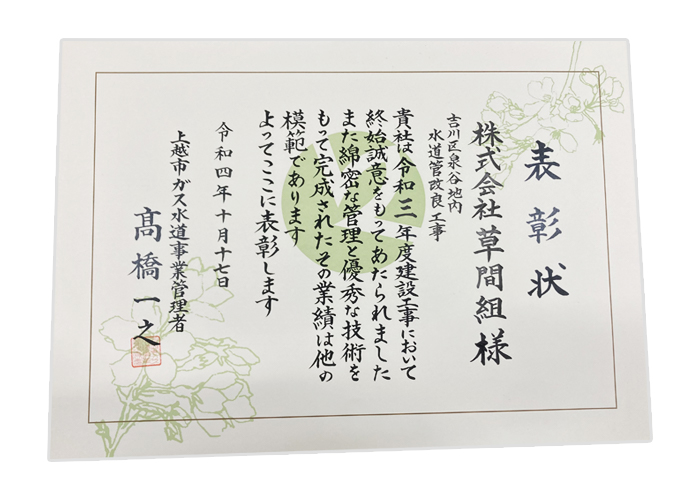 表彰状
株式会社草間組様
吉川区泉谷地内
水道管改良工事
貴社は令和三年度建設工事において
終始誠意をもってあたられました
また綿密な管理と優秀な技術を
もって完成されたその業績は他の
模範であります
よってここに表彰します
令和四年十月十七日
上越市ガス水道事業管理者
髙橋一之